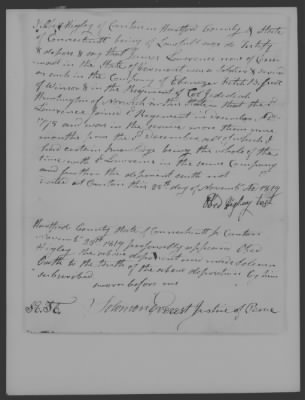 I Obed Higley of Canton in Hartford County & State
of Connecticut being of Lawfull age do testify
& depose & say that James Lawrence now of
in the State of Vermont was a Soldier &
as such in the Company of Ebenezar
of Winsor & in the Regiment of Col. Jedediah
Huntington of Norwich in this State that the sd
Lawrence Joined sd Regiment in
1778 and was in the service more than nine
months from the
said certain knowledge being the whole of the
time with sd Lawrence in the same Company
and further the deponent saith not
Dated at Canton this 28th day of Novemr AD 1819
Obed Higley
Hartford County State of Connecticut Ss Canton
28th 1819 personally appeared Obed
Higley the above deponent and made Solemn
Oath to the truth of the above deposition by him
subscribed
sworn before me
Solomon Everest Justice of Peace